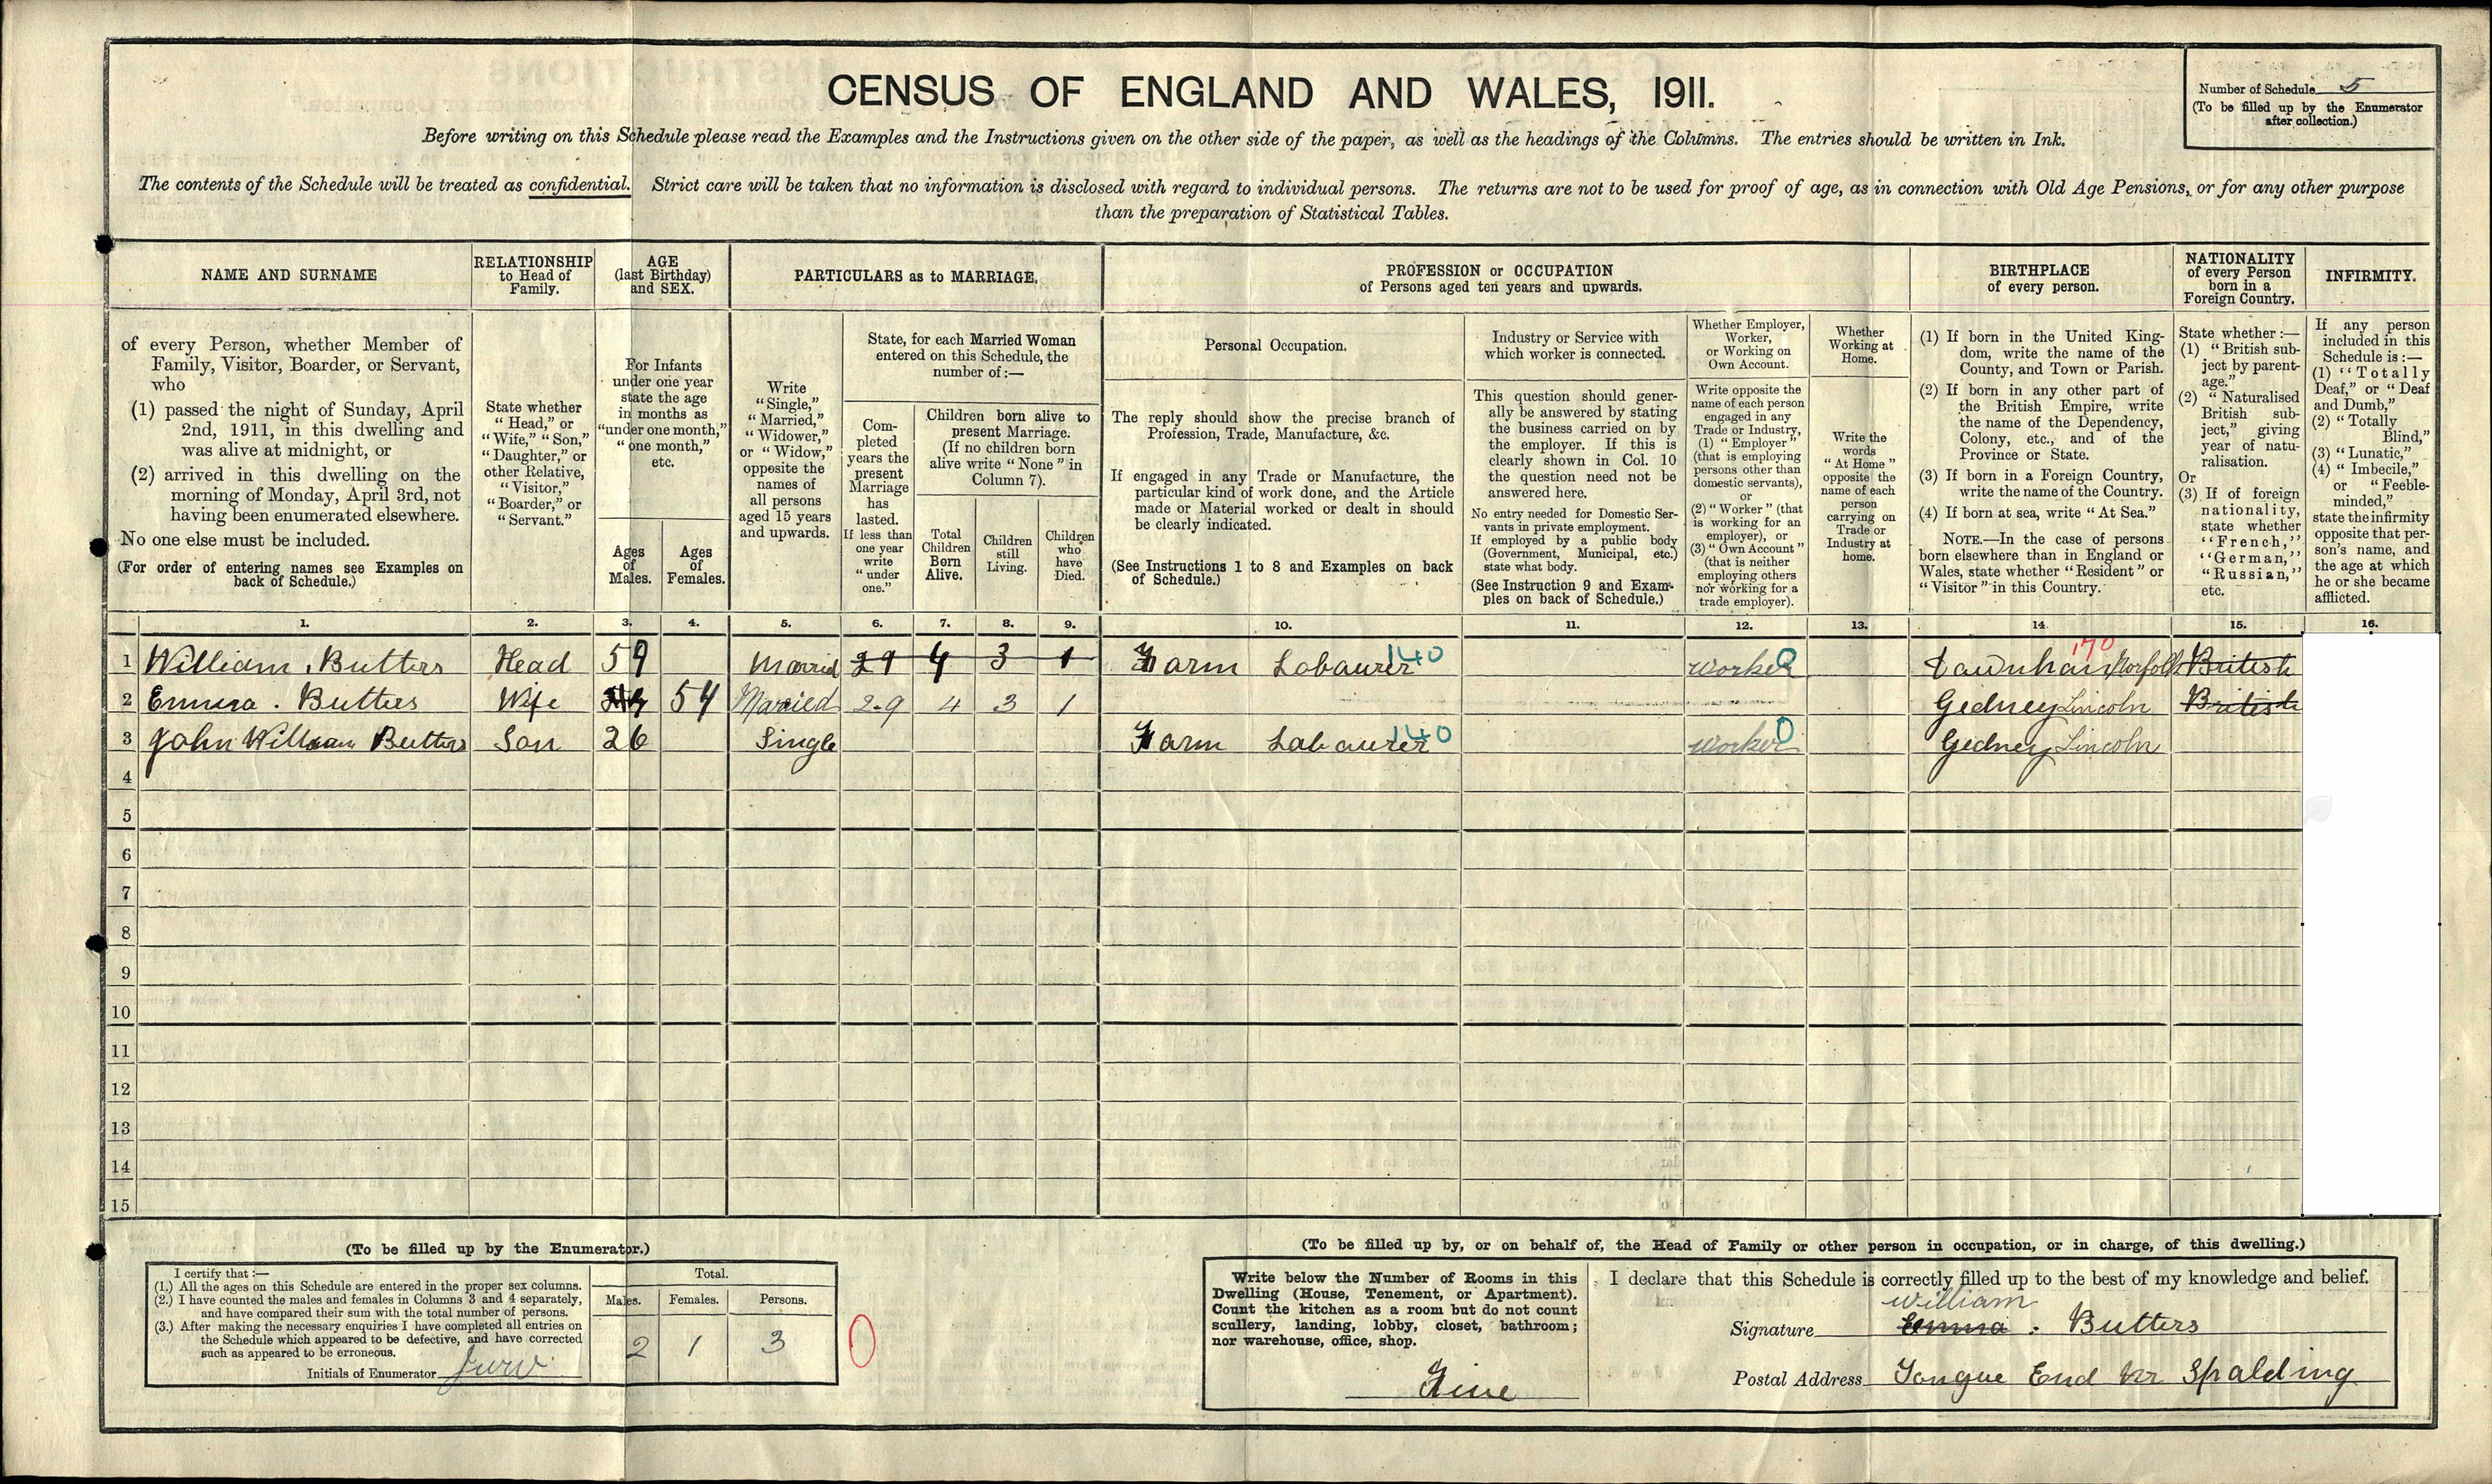 CENSUS OF ENGLAND AND WALES, 1911.
Number of Schedule 5
(To be filled up by the Enumerator
after collection.)
Before writing on this Schedule please read the Examples and the Instructions given on the other side of the paper, as well as the headings of the Columns. The entries should be written in Ink.
The contents of the Schedule will be treated as confidential. Strict care will be taken that no information is disclosed with regard to individual persons. The returns are not to be used for proof of age, as in connection with Old Age Pensions, or for any other purpose
than the preparation of Statistical Tables.
NAME AND SURNAME
of every Person, whether Member of
Family, Visitor, Boarder, or Servant,
who
(1) passed the night of Sunday, April
2nd, 1911, in this dwelling and
was alive at midnight, or
(2) arrived in this dwelling on the
morning of Monday, April 3rd, not
having been enumerated elsewhere.
No one else must be included.
(For order of entering names see Examples on
back of Schedule.)
RELATIONSHIP
to Head of
Family.
State whether
"Head," or
"Wife," "Son,"
"Daughter," or
other Relative,
"Visitor,"
"Boarder," or
"Servant."
AGE
(last Birthday)
and SEX.
For Infants
under one year
state the age
in months as
"under one month,"
"one month,"
etc.
Ages
of
Males.
Ages
of
Females.
PARTICULARS as to MARRIAGE.
Write
"Single,"
"Married,"
"Widower,"
or "Widow,"
opposite the
names of
all persons
aged 15 years
and upwards.
State, for each Married Woman
entered on this Schedule, the
number of:—
Com-
pleted
years the
present
Marriage
has
lasted.
If less than
one year
write
"under
one."
Children born alive to
present Marriage.
(If no children born
alive write "None" in
Column 7).
Total
Children
Born
Alive.
Children
still
Living.
Children
who
have
Died.
PROFESSION or OCCUPATION
of Persons aged ten years and upwards.
Personal Occupation.
The reply should show the precise branch of
Profession, Trade, Manufacture, &c.
If engaged in any Trade or Manufacture, the
particular kind of work done, and the Article
made or Material worked or dealt in should
be clearly indicated.
(See Instructions 1 to 8 and Examples on back
of Schedule.)
Industry or Service with
which worker is connected.
This question should gener-
ally be answered by stating
the business carried on by
the employer. If this is
clearly shown in Col. 10
the question need not be
answered here.
No entry needed for Domestic Ser-
vants in private employment.
If employed by a public body
(Government, Municipal, etc.)
state what body.
(See Instruction 9 and Exam-
ples on back of Schedule.)
Whether Employer,
Worker,
or Working on
Own Account.
Write opposite the
name of each person
engaged in any
Trade or Industry,
(1) "Employer"
(that is employing
persons other than
domestic servants),
or
(2) "Worker" (that
is working for an
employer), or
(3) "Own Account"
(that is neither
employing others
nor working for a
trade employer).
Whether
Working at
Home.
Write the
words
"At Home"
opposite the
name of each
person
carrying on
Trade or
Industry at
home.
BIRTHPLACE
of every person.
(1) If born in the United King-
dom, write the name of the
County, and Town or Parish.
(2) If born in any other part of
the British Empire, write
the name of the Dependency,
Colony, etc., and of the
Province or State.
(3) If born in a Foreign Country,
write the name of the Country.
(4) If born at sea, write "At Sea."
NOTE.—In the case of persons
born elsewhere than in England or
Wales, state whether "Resident" or
"Visitor" in this Country.
NATIONALITY
of every Person
born in a
Foreign Country.
State whether:—
(1) "British sub-
ject by parent-
age."
(2) "Naturalised
British sub-
ject," giving
year of natu-
ralisation.
Or
(3) If of foreign
nationality,
state whether
"French,"
"German,"
"Russian,"
etc.
INFIRMITY.
If any person
included in this
Schedule is:—
(1) "Totally
Deaf," or "Deaf
and Dumb,"
(2) "Totally
Blind,"
(3) "Lunatic,"
(4) "Imbecile,"
or "Feeble-
minded,"
state the infirmity
opposite that per-
son's name, and
the age at which
he or she became
afflicted.
1. 2. 3. 4. 5. 6. 7. 8. 9. 10. 11. 12. 13. 14. 15. 16.
1 William Butters Head 59 Married 29 4 3 1 Farm Labourer 140 worker 0 Downham Norfolk 170 British
2 Emma . Butters Wife 54 Married 29 4 3 1 Gedney Lincoln British
3 John William Butters Son 26 Single Farm Labourer 140 worker 0 Gedney Lincoln
4
5
6
7
8
9
10
11
12
13
14
15
(To be filled up by the Enumerator.)
I certify that:—
(1.) All the ages on this Schedule are entered in the proper sex columns.
(2.) I have counted the males and females in Columns 3 and 4 separately,
and have compared their sum with the total number of persons.
(3.) After making the necessary enquiries I have completed all entries on
the Schedule which appeared to be defective, and have corrected
such as appeared to be erroneous.
Initials of Enumerator
Total.
Males. Females. Persons.
2 1 3
0
(To be filled up by, or on behalf of, the Head of Family or other person in occupation, or in charge, of this dwelling.)
Write below the Number of Rooms in this
Dwelling (House, Tenement, or Apartment).
Count the kitchen as a room but do not count
scullery, landing, lobby, closet, bathroom;
nor warehouse, office, shop.
Five
I declare that this Schedule is correctly filled up to the best of my knowledge and belief.
William
Signature Emma . Butters
Postal Address Tongue End Nr Spalding